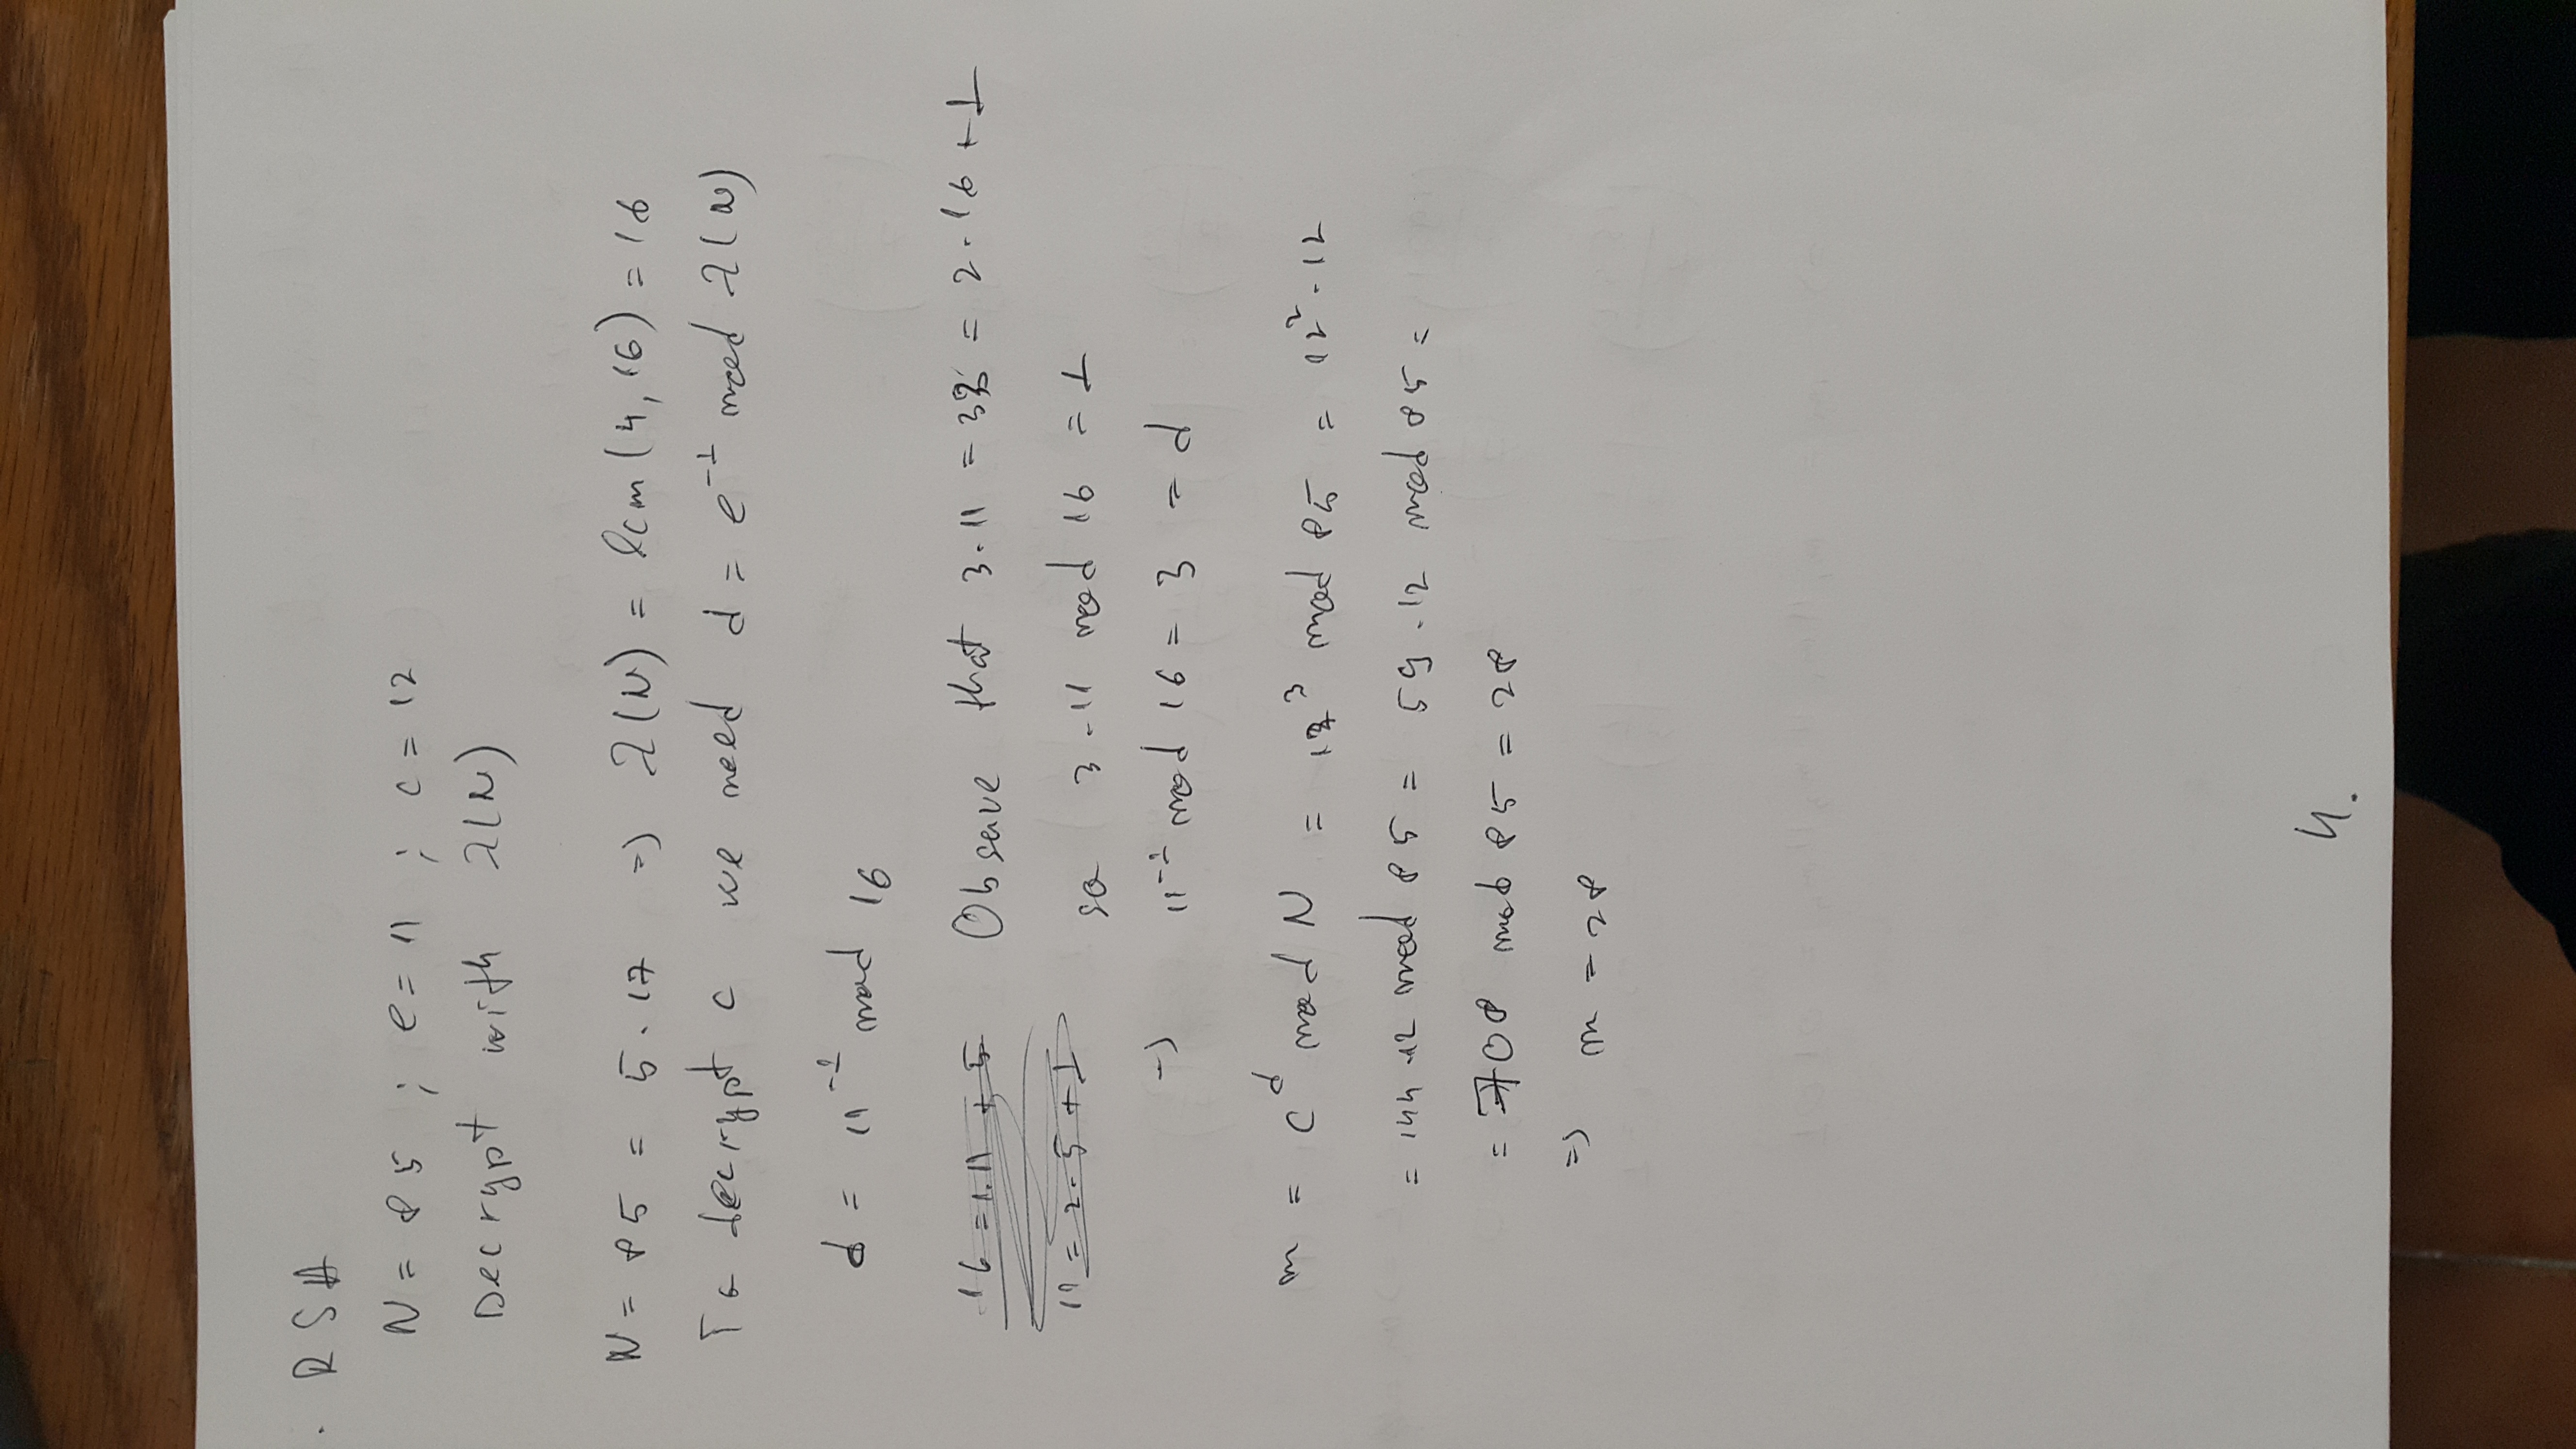 . RSA
N = 85 ; e = 11 ; c = 12
Decrypt with λ(N)
N = 85 = 5 · 17 => λ(N) = lcm (4, 16) = 16
To decrypt c we need d = e⁻¹ mod λ(N)
d = 11⁻¹ mod 16
16 = 1·11 + 5
11 = 2·5 + 1
Observe that 3·11 = 33 = 2·16 + 1
so 3·11 mod 16 = 1
=> 11⁻¹ mod 16 = 3 = d
m = c^d mod N = 12³ mod 85 = 12²·12
= 144·12 mod 85 = 59·12 mod 85 =
= 708 mod 85 = 28
=> m = 28
4.